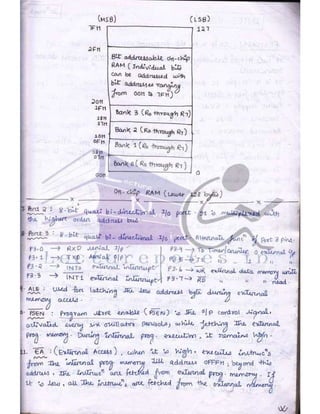 (MSB) (LSB)
7FH 127
Bit addressable on-chip
RAM (Individual bits
can be addressed with
bit addresses ranging
from 00H to 7FH)
2FH
20H
1FH
Bank 3 (R0 through R7)
18H
17H
Bank 2 (R0 through R7)
10H
Bank 1 (R0 through R7)
Bank 0 (R0 through R7)
00H 0
On-chip RAM (Lower 128 bytes)
Port 2 : 8-bit quasi bi-directional I/o port. It is multiplexed with
the higher order address bus
Port 3 : 8-bit quasi bi-directional I/o port. Alternate of Port 3 pins.
P3.0 → RXD serial I/p
P3.1 → serial
P3.2 → INT0 external interrupt
P3.3 → INT1 external interrupt
P3.6 → WR external data memory write
P3.7 → RD " " " read
ALE : Used for latching the low address byte during external
memory access.
PSEN : Program store enable (PSEN) is the o/p control signal.
activated every six oscillator periods, while fetching the external
prog memory. During internal prog. execution, it remains high.
EA : (External Access), when it is high, executes instruc's
from the internal prog memory till address 0FFFH; beyond this
address, the instruc's are fetched from external prog. memory. If
it is low, all the instruc's are fetched from the external memory